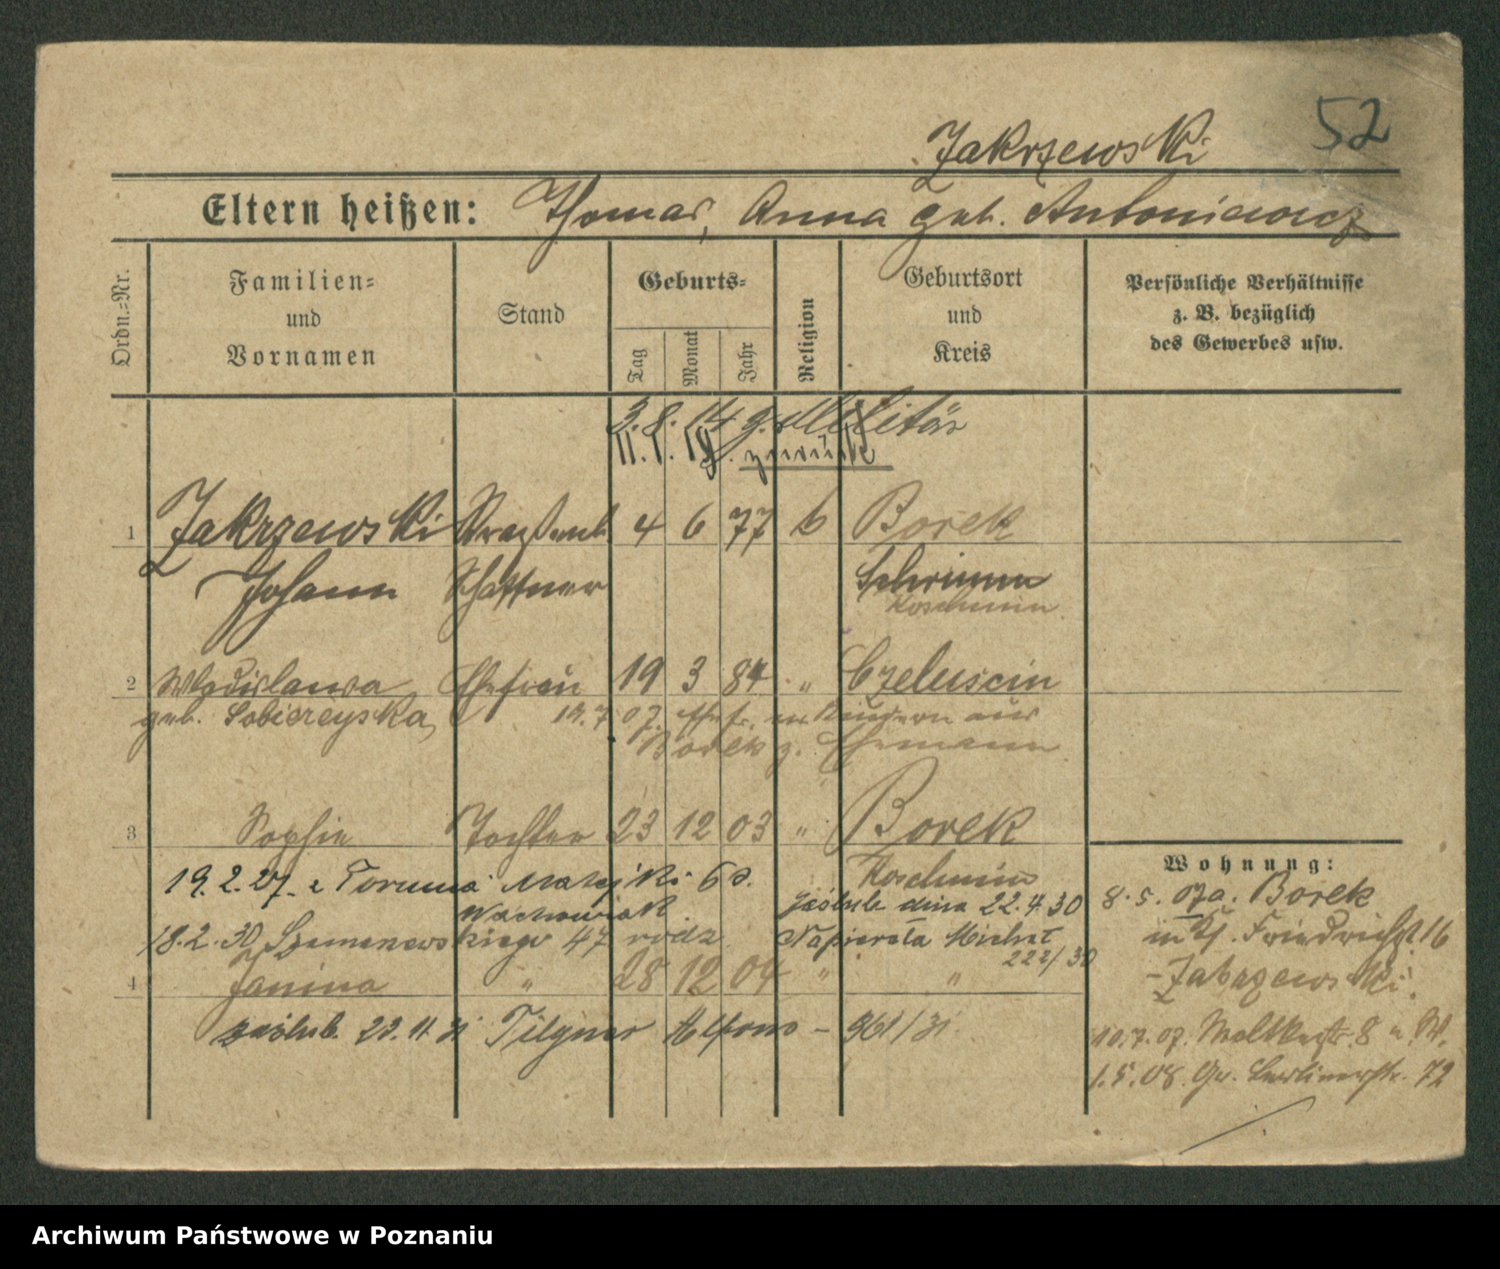 52
Zakrzewski
Eltern heißen: Thomas, Anna geb. Antoniewicz
Ordn.-Nr.
Familien- und Vornamen
Stand
Geburts-
Tag
Monat
Jahr
Religion
Geburtsort und Kreis
Persönliche Verhältnisse
z. B. bezüglich
des Gewerbes usw.
3.8.14 z. Militär
11.1.18. zurück
1 Zakrzewski 4 6 77 k Borek
Johann Schaffner Schrimm
Koschmin
2 Wladislawa Ehefrau 19 3 84 " Czeluscin
geb.
13.7.07. Ehefr. m. Kindern aus
Borek z. Ehemann
3 Sophie Tochter 23 12 03 " Borek
Koschmin
19.2.27. z Torunia Matejki 60.
Wachowiak
zaślub. dnia 22.4.30
18.2.30 47 rodz. Napierała Michał
222/30
4 Janina " 28 12 04 " "
zaślub. 22.11.31 Tilgner Alfons – 961/31
Wohnung:
8.5.07 a. Borek
in Friedrichst. 16
- Zakrzewski.
10.7.07. Moltkestr. 8 W.
1.5.08. Gr. Berlinerstr. 72
Archiwum Państwowe w Poznaniu